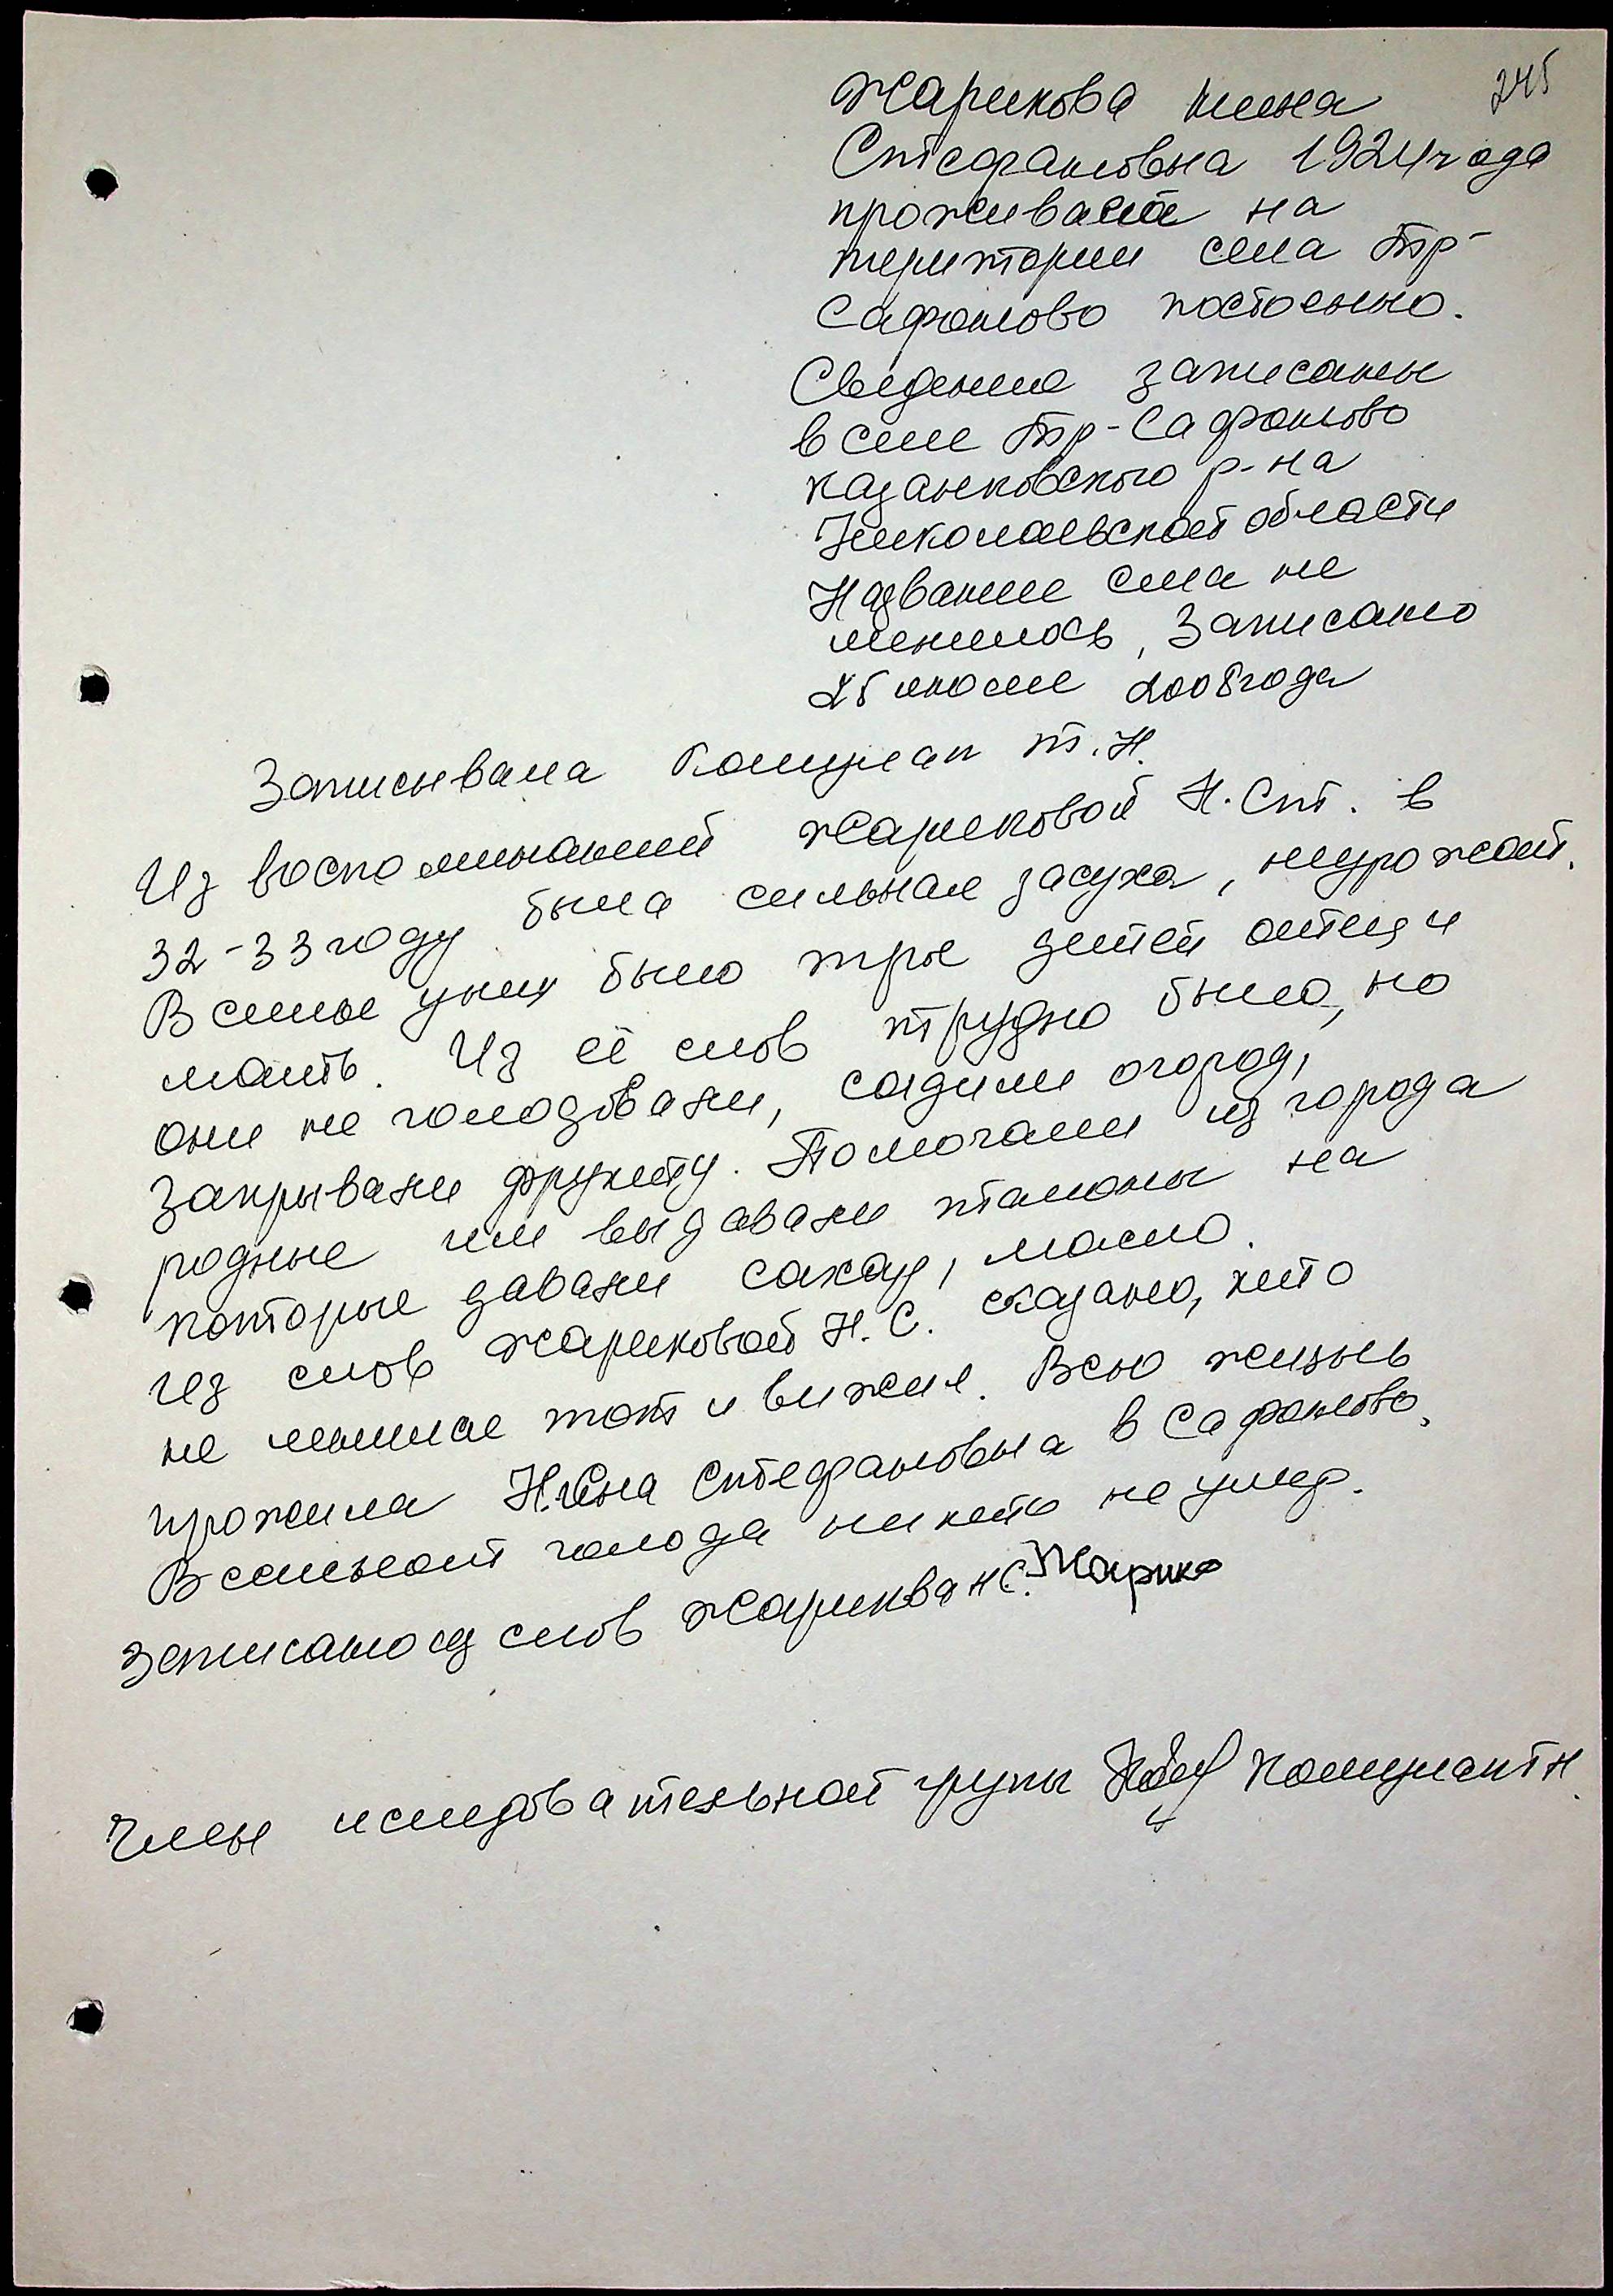 245
Жарикова Нина
Стефановна 1924 года
проживает на
територии села Тр-
Сафоново постоенно.
Сведение записаны
в селе Тр-Сафоново
Казанковского р-на
Николаевской области
Название села не
менялось, Записано
25 июля 2008 года
Записывала Кошулап Т.Н.
Из воспоминаний Жариковой Н.Ст. в
32-33 году была сильная засуха, неурожай.
В семье у них было трое детей отец и
мать. Из её слов трудно было, но
они не голодовали, садили огород,
закрывали фрукту. Помогали из города
родные им выдавали талоны на
которые давали сахар, масло.
Из слов Жариковой Н.С. сказано, кто
не ленился тот и выжил. Всю жизнь
прожила Нина Стефановна в Сафоново.
В селе от голода никто не умер.
Записано из слов Жарикова Н.С. Жарико
Член иследовательной групы Кошулап Т.Н.